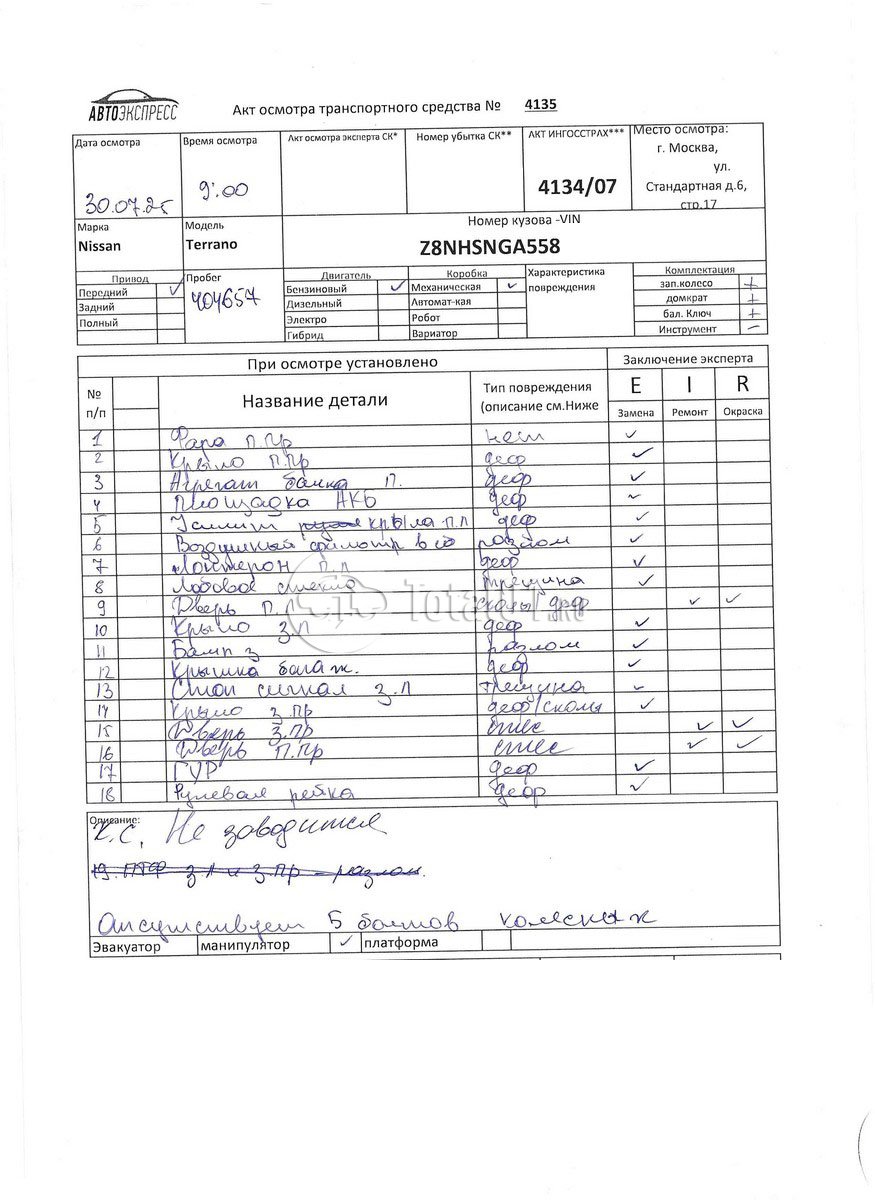 АВТОЭКСПРЕСС
Акт осмотра транспортного средства № 4135
Дата осмотра
30.07.25
Время осмотра
9:00
Акт осмотра эксперта СК*
Номер убытка СК**
АКТ ИНГОССТРАХ***
4134/07
Место осмотра:
г. Москва,
ул.
Стандартная д.6,
стр.17
Марка
Nissan
Модель
Terrano
Номер кузова -VIN
Z8NHSNGA558
Привод
Передний ✓
Задний
Полный
Пробег
404657
Двигатель
Бензиновый ✓
Дизельный
Электро
Гибрид
Коробка
Механическая ✓
Автомат-кая
Робот
Вариатор
Характеристика
повреждения
Комплектация
зап.колесо +
домкрат +
бал. Ключ +
Инструмент –
При осмотре установлено
Заключение эксперта
№
п/п
Название детали
Тип повреждения
(описание см.Ниже
E I R
Замена Ремонт Окраска
1 Фара П.Пр нет ✓
2 Крыло П.Пр деф ✓
3 Агрегат бачка П. деф ✓
4 Площадка АКБ деф ✓
5 Усилит крыла П.Л деф ✓
6 Воздушный фильтр в сб разлом ✓
7 Лонжерон П.Л деф ✓
8 Лобовое стекло трещина ✓
9 Дверь П.Л сколы деф ✓ ✓
10 Крыло З.Л деф ✓
11 Бамп З разлом ✓
12 Крышка багаж. деф ✓
13 Стоп сигнал З.Л трещина ✓
14 Крыло З.Пр деф/сколы ✓
15 Дверь З.Пр ✓ ✓
16 Дверь П.Пр ✓ ✓
17 ГУР деф ✓
18 Рулевая рейка деф ✓
Описание:
К.С. Не заводится
19. ПТФ З.Л и З.Пр – разлом.
Отсутствует 5 болтов колесных
Эвакуатор манипулятор ✓ платформа
Total01.ru